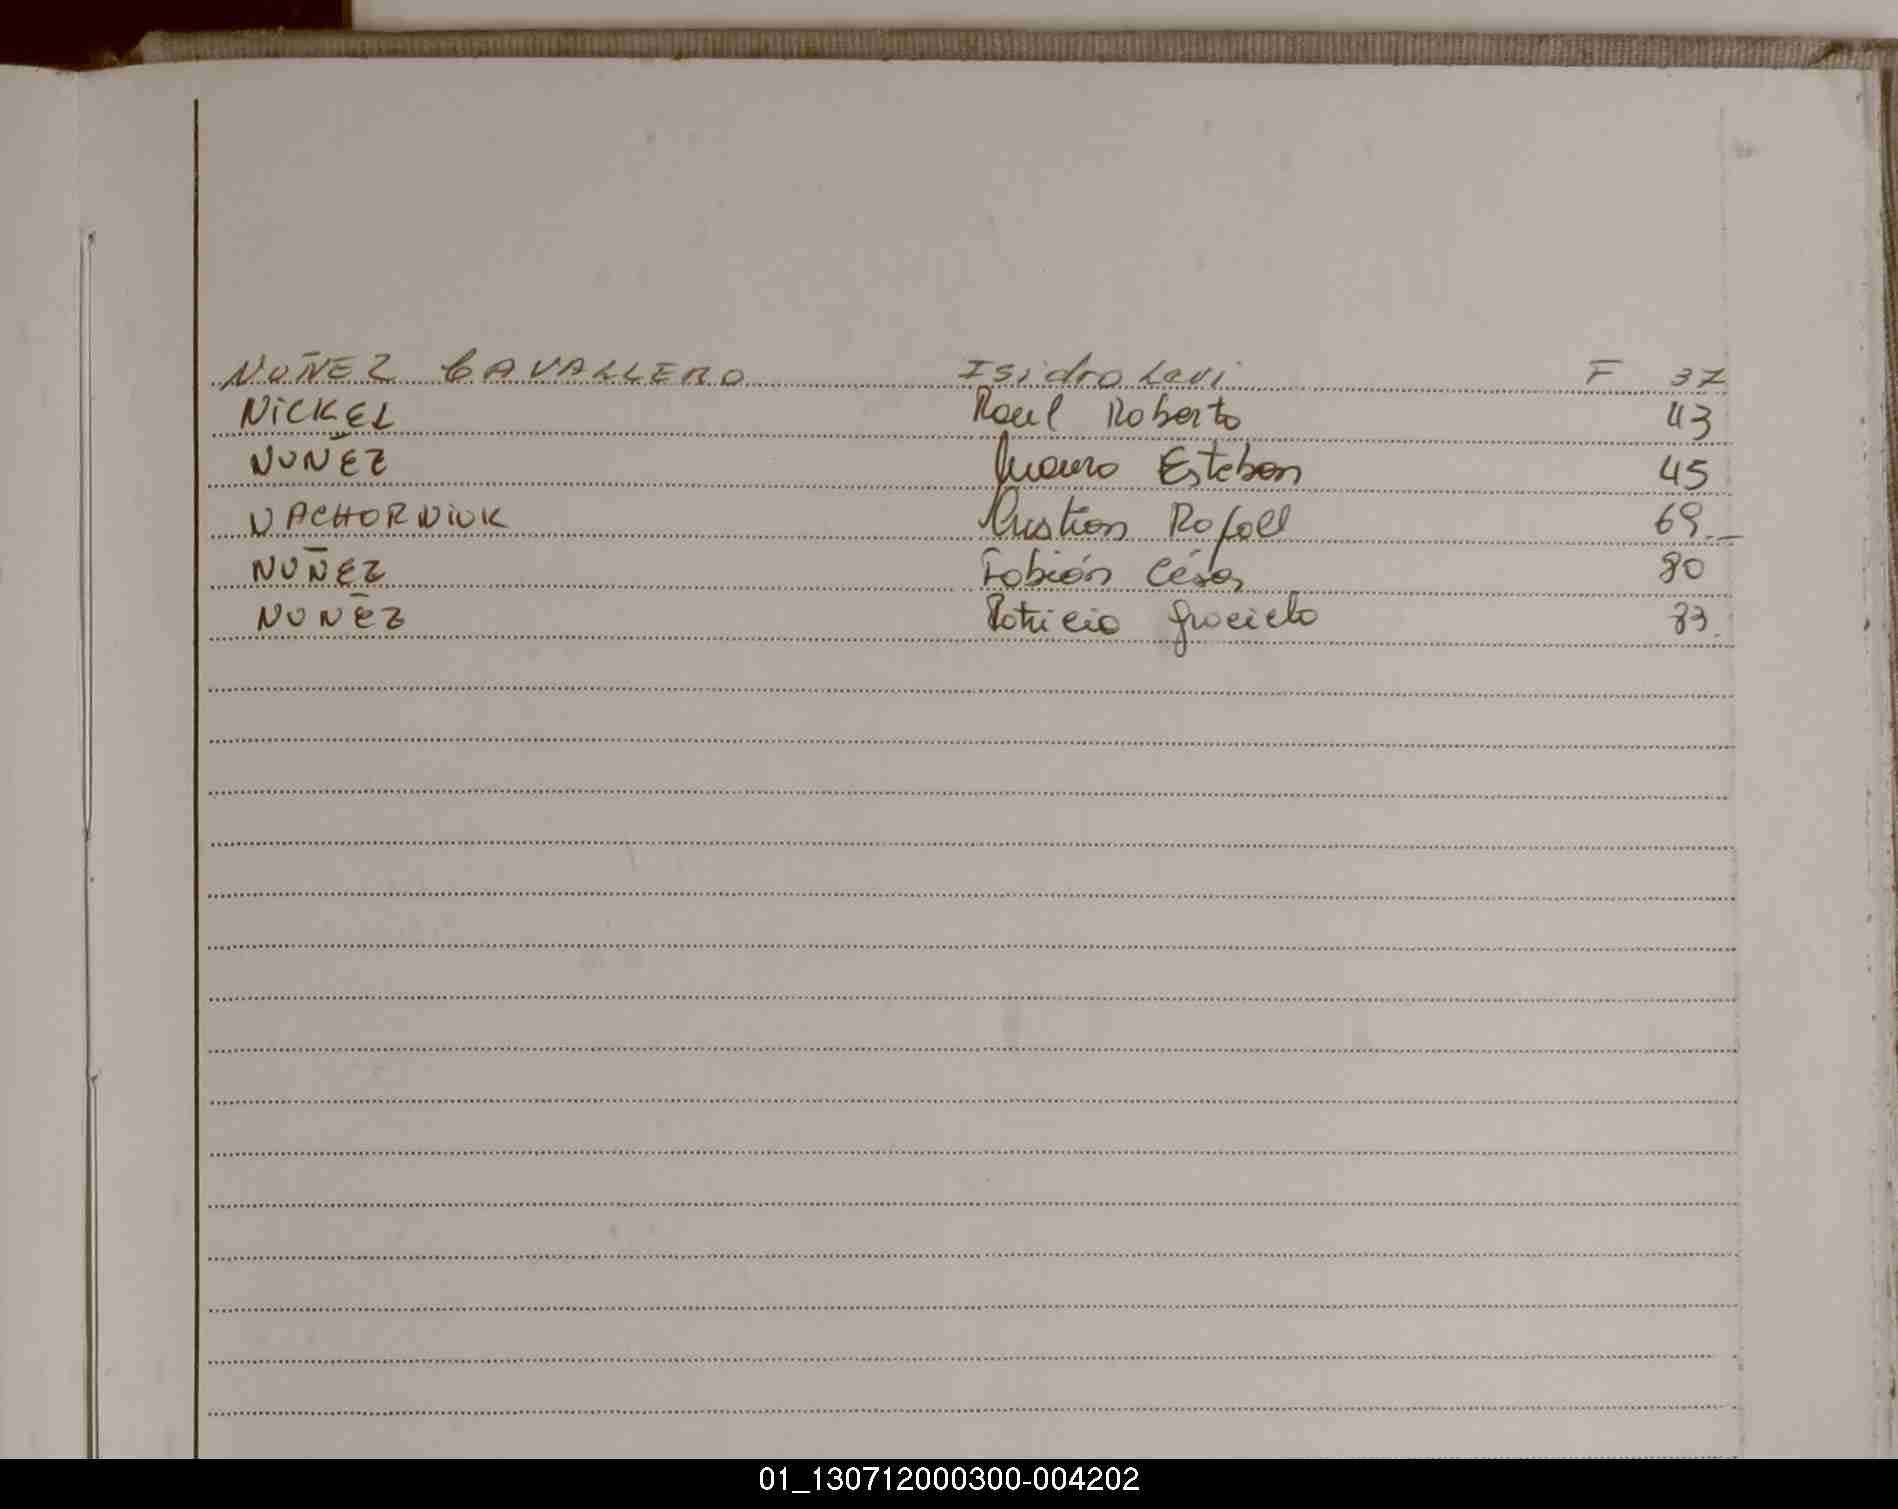 NUÑEZ CAVALLERO Isidro Levi F 37
NICKEL Raul Roberto 43
NUÑEZ Mauro Esteban 45
NACHORNIUK Cristian Rafael 69.
NUÑEZ Fabián César 80
NUÑEZ Patricia Graciela 83.
01_130712000300-004202